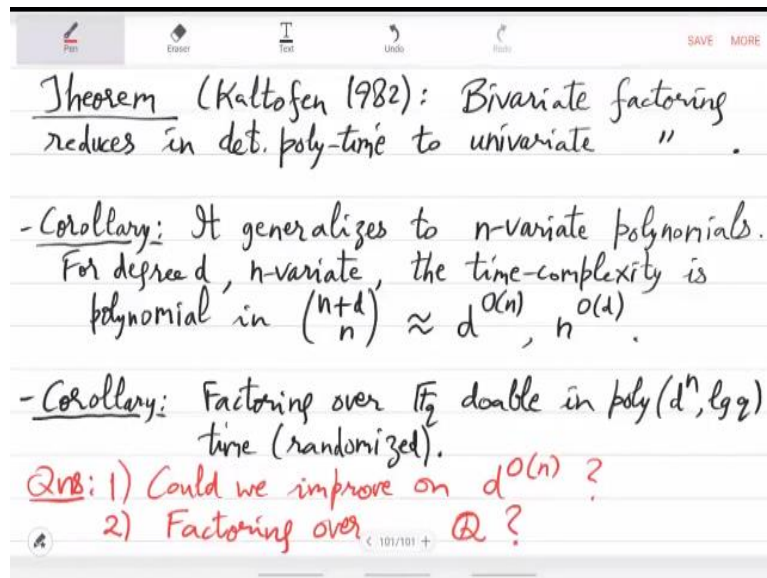 Pen Eraser Text Undo Redo SAVE MORE
Theorem (Kaltofen 1982): Bivariate factoring
reduces in det. poly-time to univariate " .
- Corollary: It generalizes to n-variate polynomials.
For degree d, n-variate, the time-complexity is
polynomial in (n+d n) ≈ d^O(n), n^O(d).
- Corollary: Factoring over F_q doable in poly(d^n, lg q)
time (randomized).
Qns: 1) Could we improve on d^O(n) ?
2) Factoring over Q ?
< 101/101 +